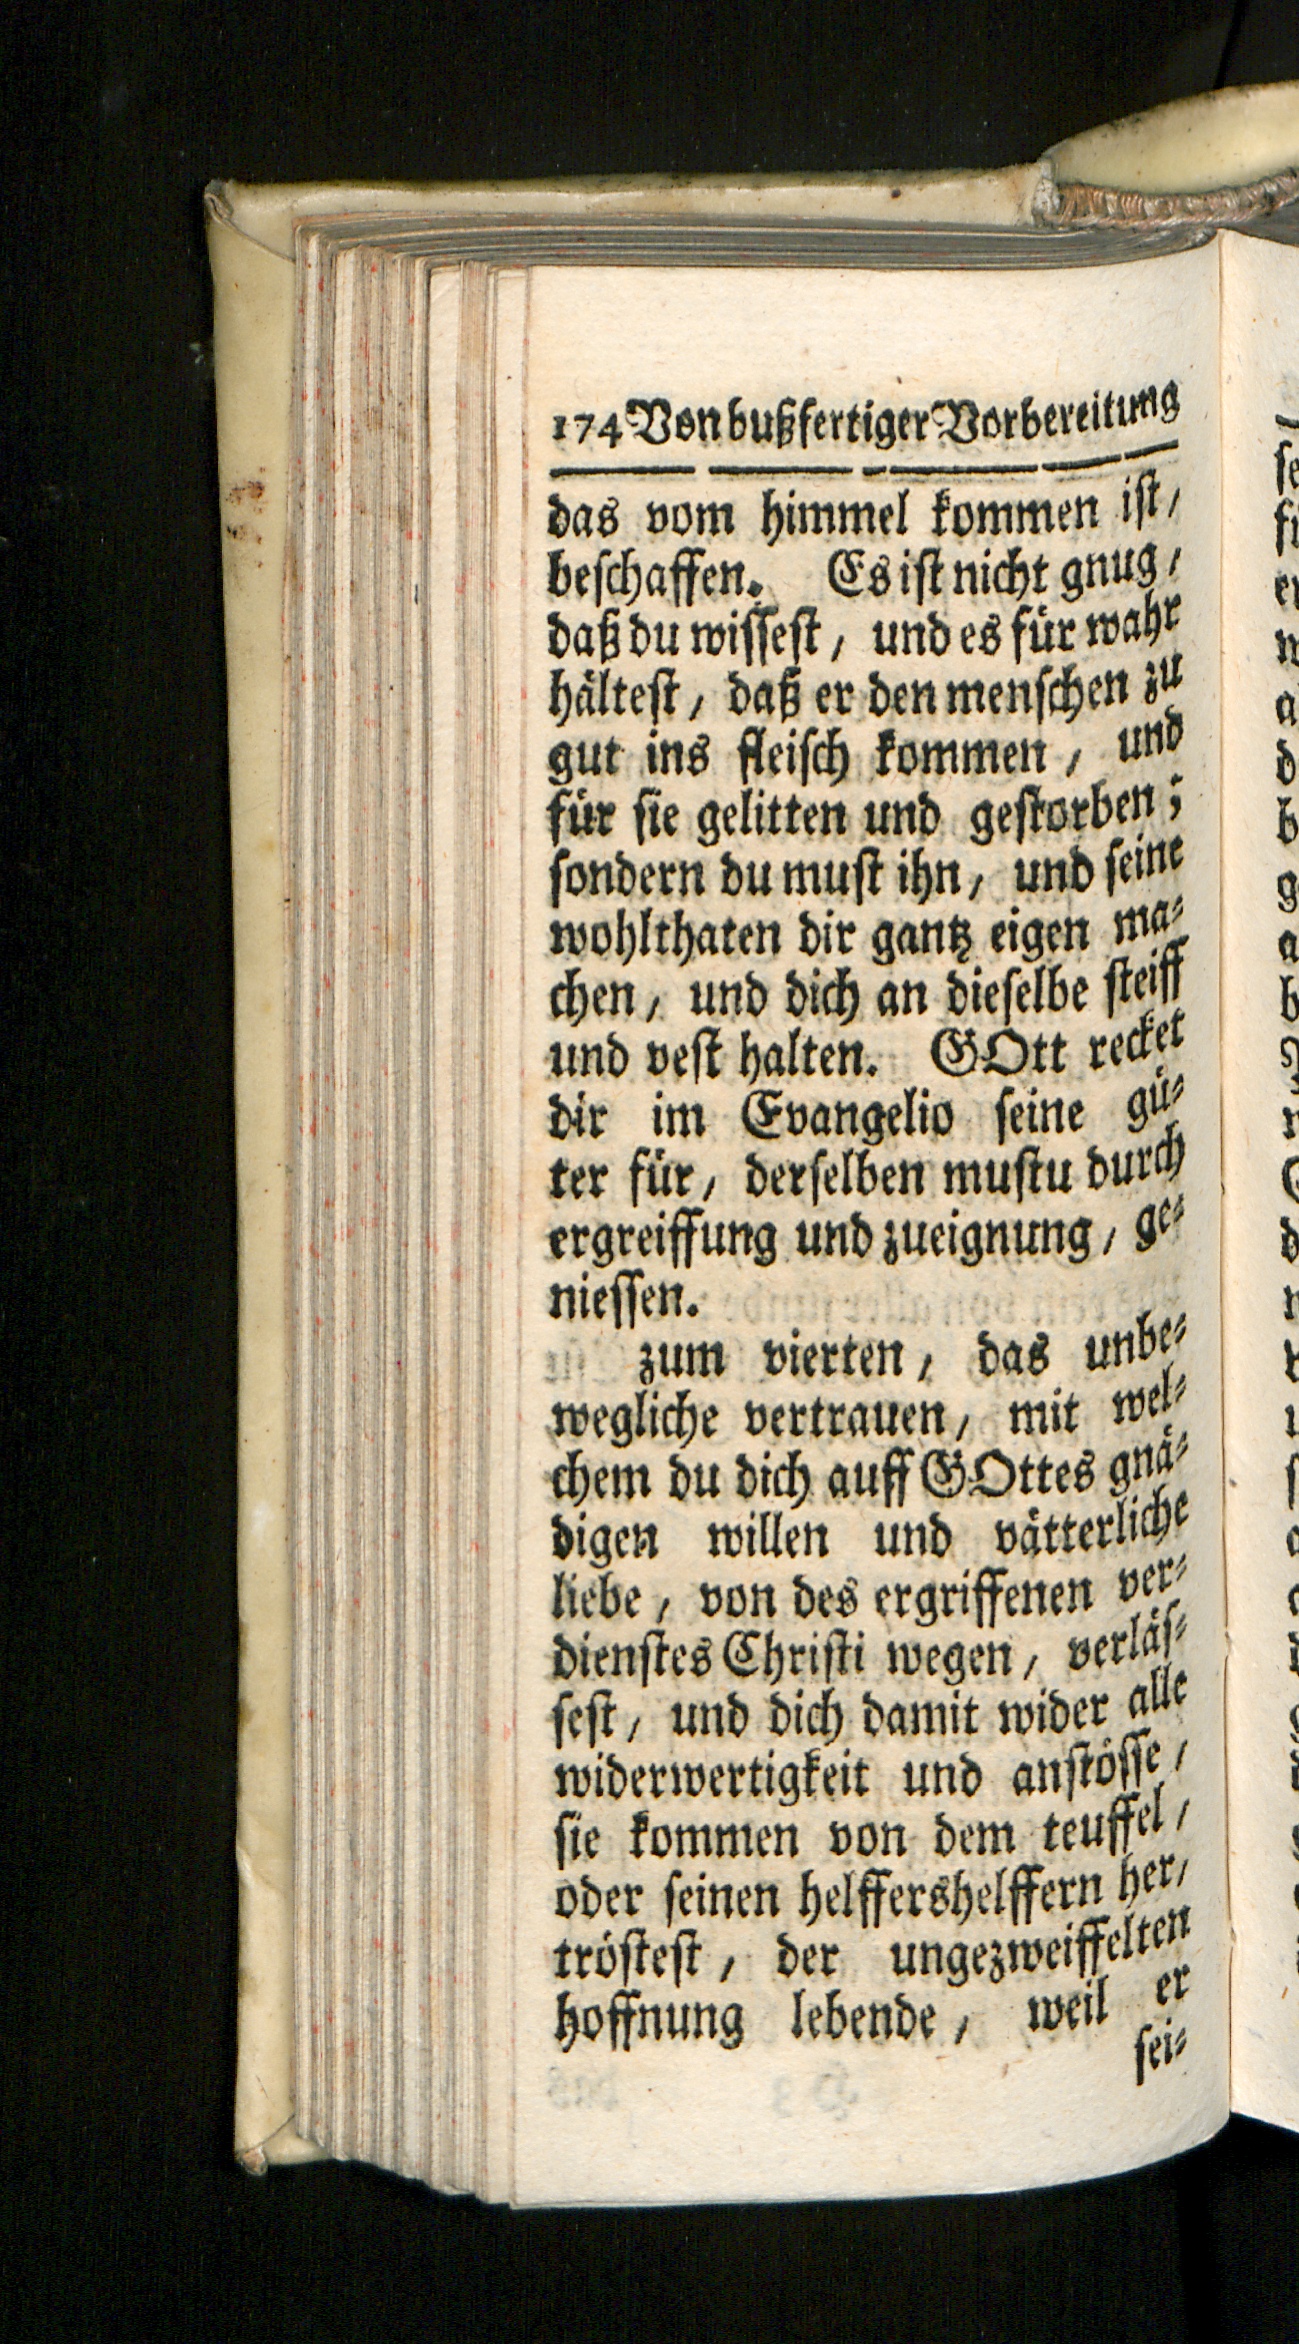 174 Von bußfertiger Vorbereitung
das vom himmel kommen ist /
beschaffen. Es ist nicht gnug /
daß du wissest / und es für wahr
hältest / daß er den menschen zu
gut ins fleisch kommen / und
für sie gelitten und gestorben ;
sondern du must ihn / und seine
wohlthaten dir gantz eigen ma-
chen / und dich an dieselbe steiff
und vest halten. GOtt recket
dir im Evangelio seine gü-
ter für / derselben mustu durch
ergreiffung und zueignung / ge-
niessen.
zum vierten / das unbe-
wegliche vertrauen / mit wel-
chem du dich auff GOttes gnä-
digen willen und vätterliche
liebe / von des ergriffenen ver-
dienstes Christi wegen / verläs-
sest / und dich damit wider alle
widerwertigkeit und anstösse /
sie kommen von dem teuffel /
oder seinen helffershelffern her /
tröstest / der ungezweiffelten
hoffnung lebende / weil er
sei-